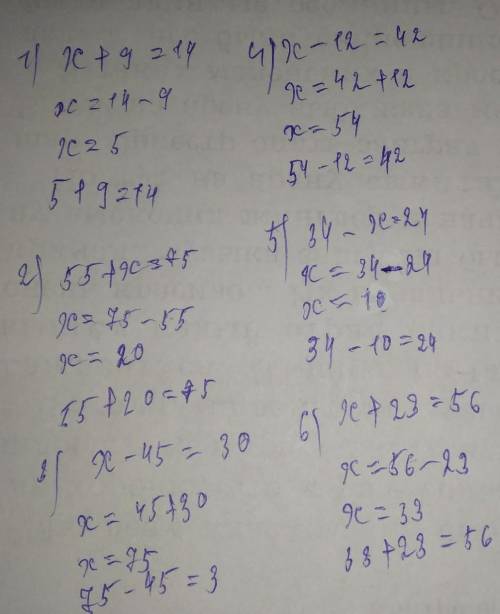 1) x + 9 = 14
x = 14 - 9
x = 5
5 + 9 = 14
2) 55 + x = 75
x = 75 - 55
x = 20
55 + 20 = 75
3) x - 45 = 30
x = 45 + 30
x = 75
75 - 45 = 3
4) x - 12 = 42
x = 42 + 12
x = 54
54 - 12 = 42
5) 34 - x = 24
x = 34 - 24
x = 10
34 - 10 = 24
6) x + 23 = 56
x = 56 - 23
x = 33
33 + 23 = 56